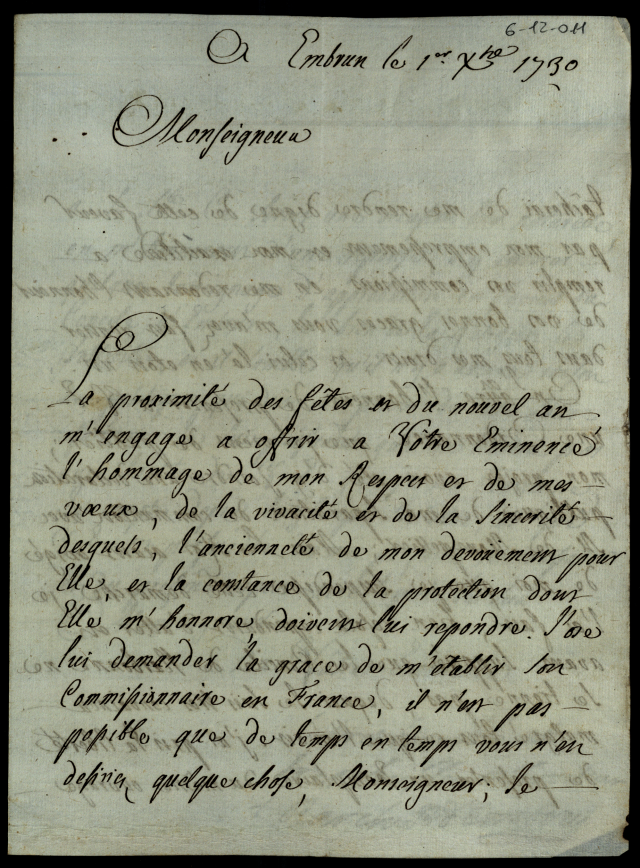 6-12-011
A Embrun le 1er Xbre 1730
Monseigneur
La proximité des fêtes et du nouvel an
m'engage a offrir a Votre Eminence
l'hommage de mon Respect et de mes
vœux, de la vivacité et de la Sincerité
desquels, l'ancienneté de mon devoüement pour
Elle, et la constance de la protection dont
Elle m'honnore, doivent lui repondre. J'ose
lui demander la grace de m'etablir son
Commissionnaire en France, il n'est pas
possible que de temps en temps vous n'en
desiriez quelque chose, Monseigneur, je